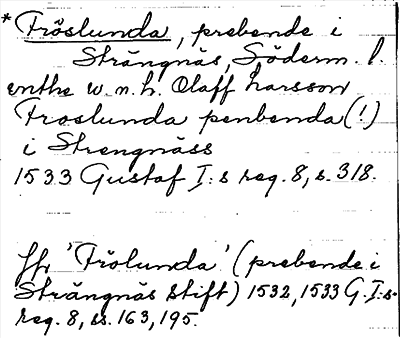 * Fröslunda, prebende i
Strängnäs, Söderm. l.
enthe w. n. h. Olaff Larsson
Froslunda penbenda (!)
i Strengnäss
1533 Gustaf I:s reg. 8, s. 318.
Jfr 'Frölunda' (prebende i
Strängnäs stift) 1532, 1533 G. I:s
reg. 8, ss. 163, 195.